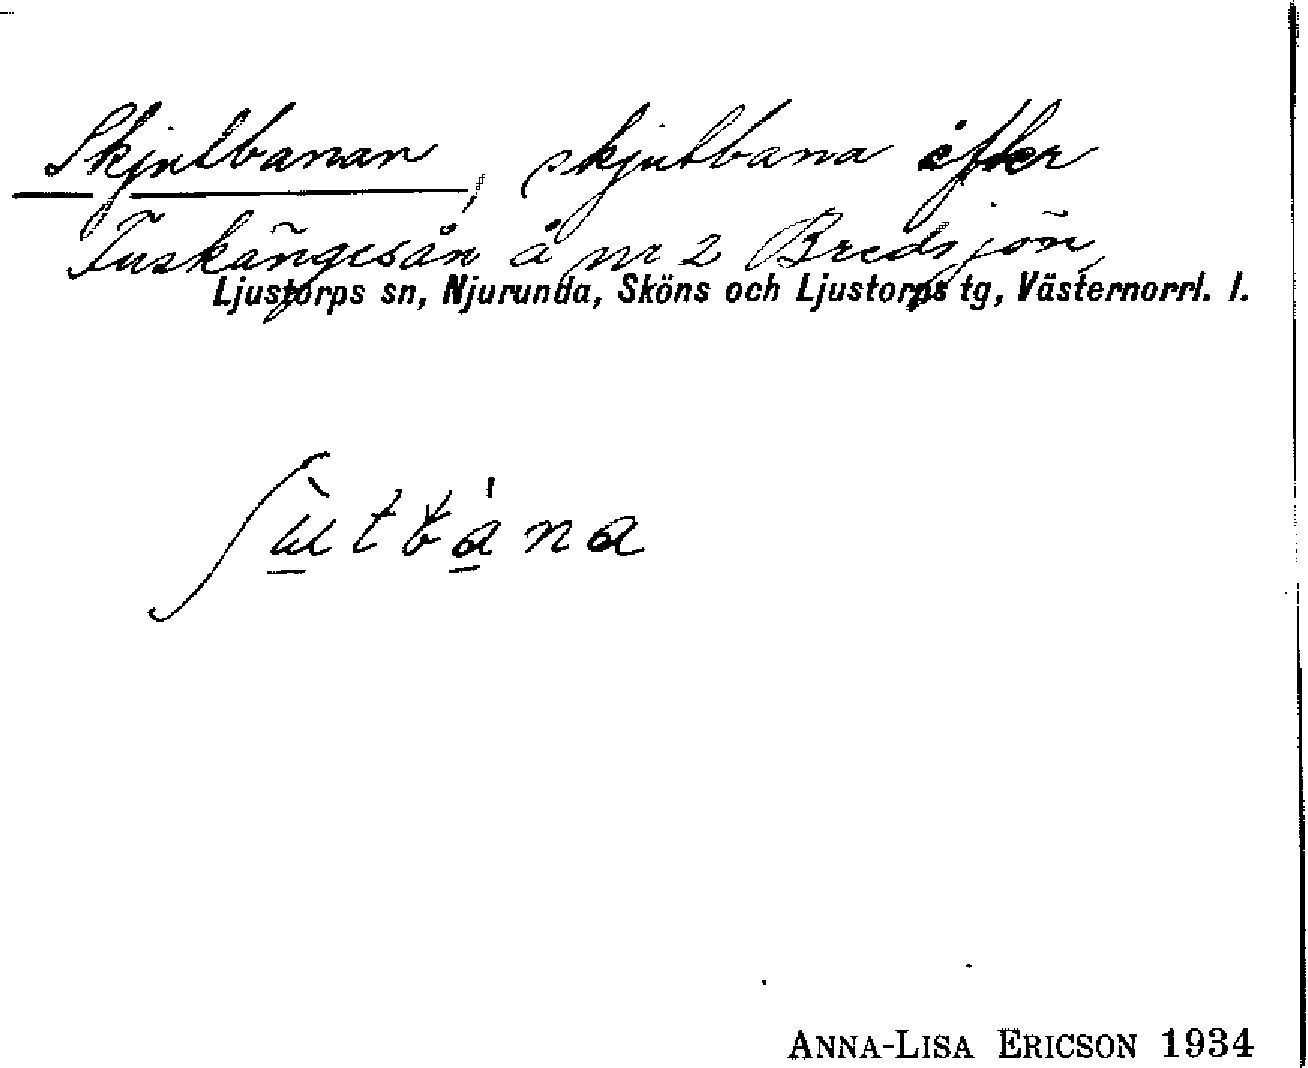 Skjutbanan, skjutbana efter
Tuskängesån å nr 2 Bredsjön
Ljustorps sn, Njurunda, Sköns och Ljustorps tg, Västernorrl. l.
ʃù̠tba̠̍na
ANNA-LISA ERICSON 1934